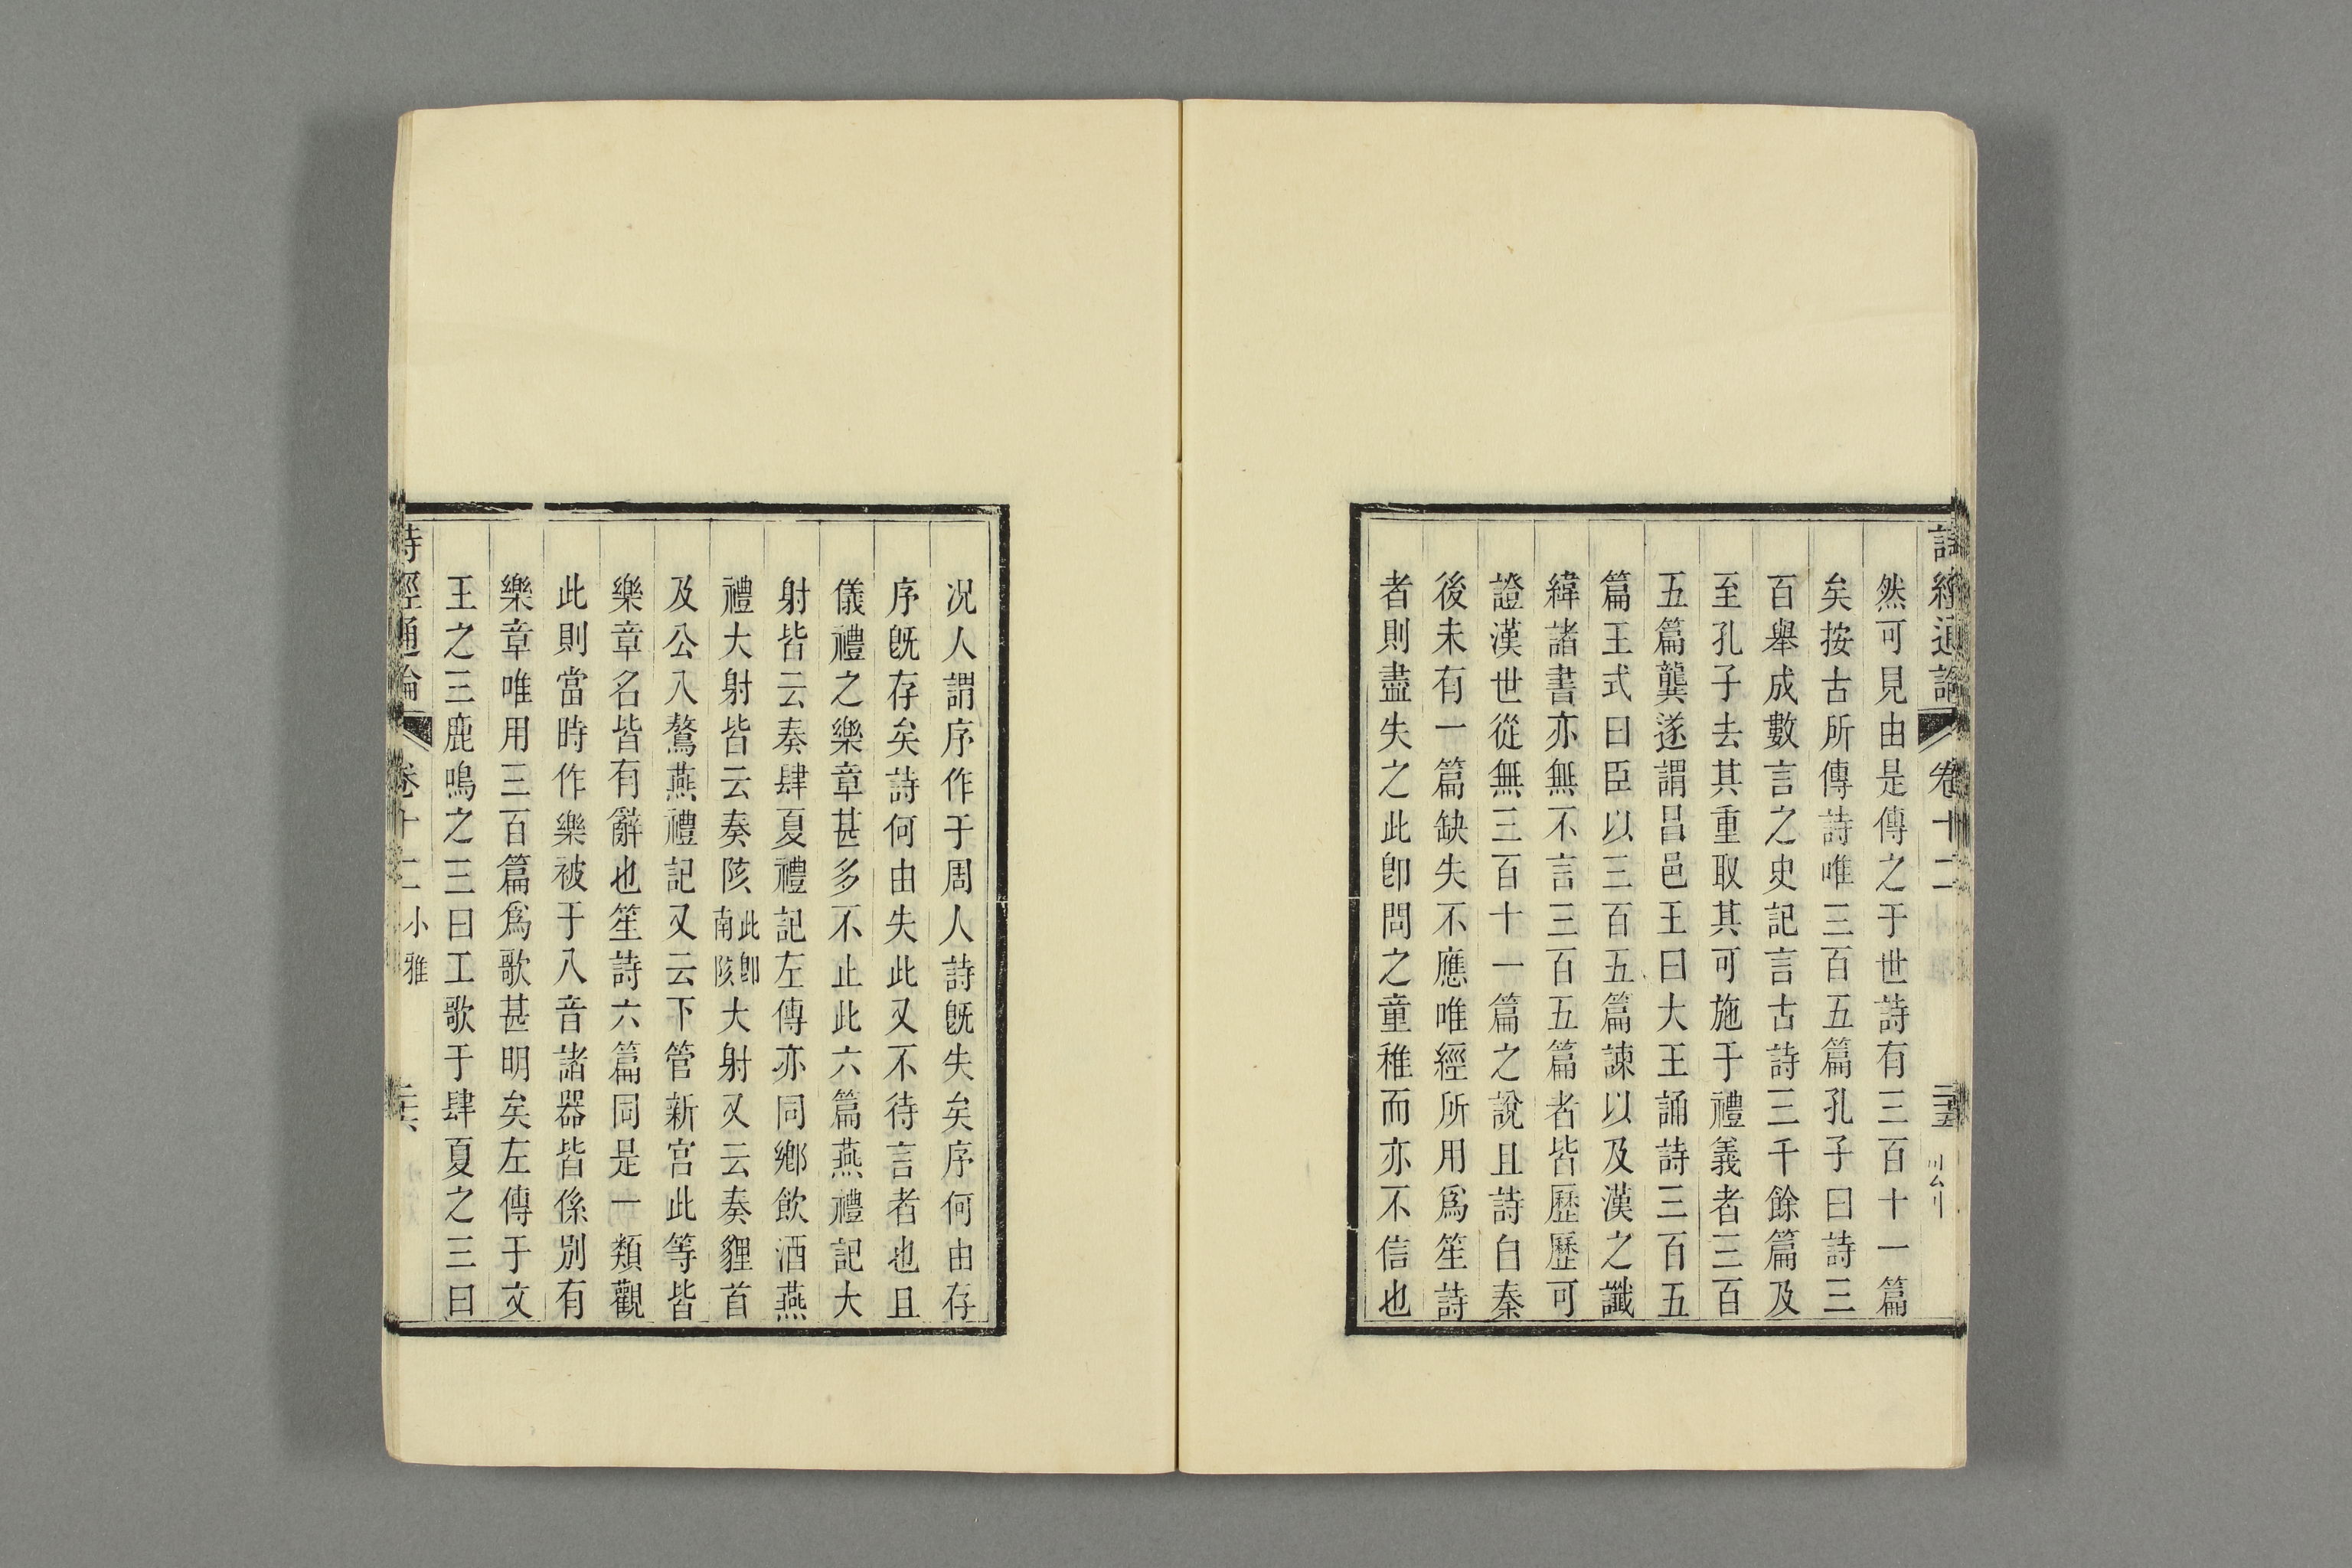 詩經通論 卷十二 二十五
然可見由是傳之于世詩有三百十一篇
矣按古所傳詩唯三百五篇孔子曰詩三
百舉成數言之史記言古詩三千餘篇及
至孔子去其重取其可施于禮義者三百
五篇龔遂謂昌邑王曰大王誦詩三百五
篇王式曰臣以三百五篇諫以及漢之讖
緯諸書亦無不言三百五篇者皆歷歷可
證漢世從無三百十一篇之說且詩自秦
後未有一篇缺失不應唯經所用爲笙詩
者則盡失之此卽問之童稚而亦不信也
况人謂序作于周人詩旣失矣序何由存
序旣存矣詩何由失此又不待言者也且
儀禮之樂章甚多不止此六篇燕禮記大
射皆云奏肆夏禮記左傳亦同鄉飲酒燕
禮大射皆云奏陔此卽南陔大射又云奏貍首
及公入驁燕禮記又云下管新宮此等皆
樂章名皆有辭也笙詩六篇同是一類觀
此則當時作樂被于八音諸器皆係別有
樂章唯用三百篇爲歌甚明矣左傳于文
王之三鹿鳴之三曰工歌于肆夏之三曰
詩經通論 卷十二 小雅 二十六